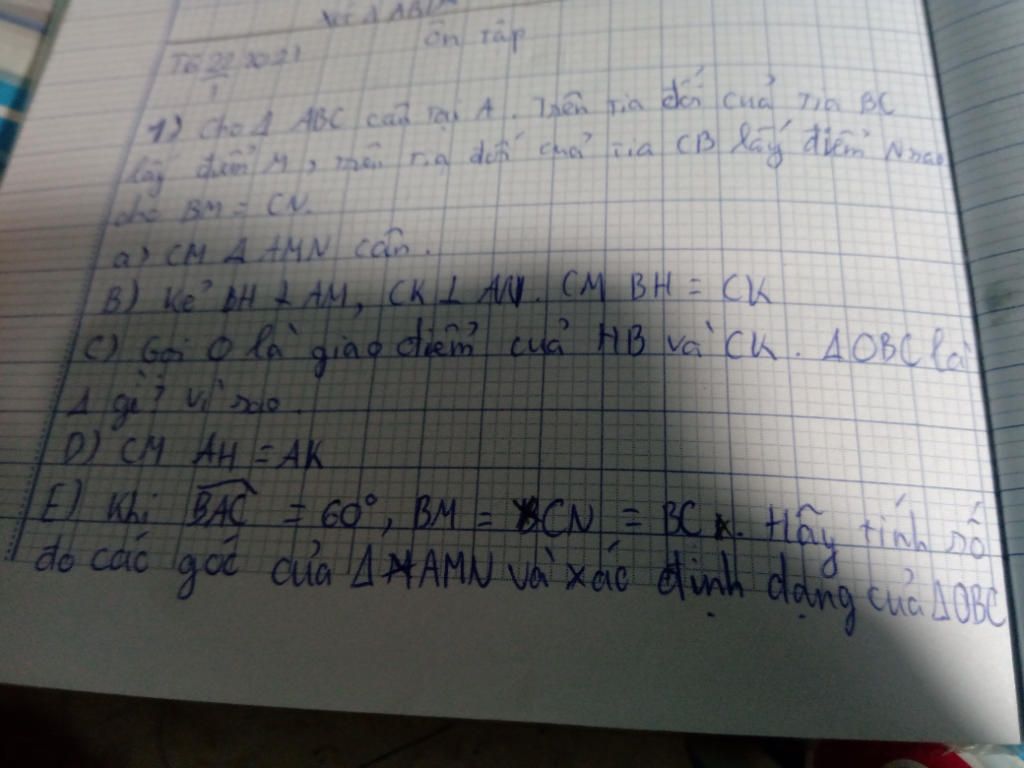 Ôn tập
1) Cho Δ ABC cân tại A. Trên tia đối của tia BC
lấy điểm M, trên tia đối của tia CB lấy điểm N sao
cho BM = CN.
a) CM Δ AMN cân.
B) Kẻ BH ⊥ AM, CK ⊥ AN. CM BH = CK
C) Gọi O là giao điểm của HB và CK. ΔOBC là
Δ gì? Vì sao.
D) CM AH = AK
E) Khi BAC = 60°, BM = CN = BC. Hãy tính số
đo các góc của Δ AMN và xác định dạng của ΔOBC